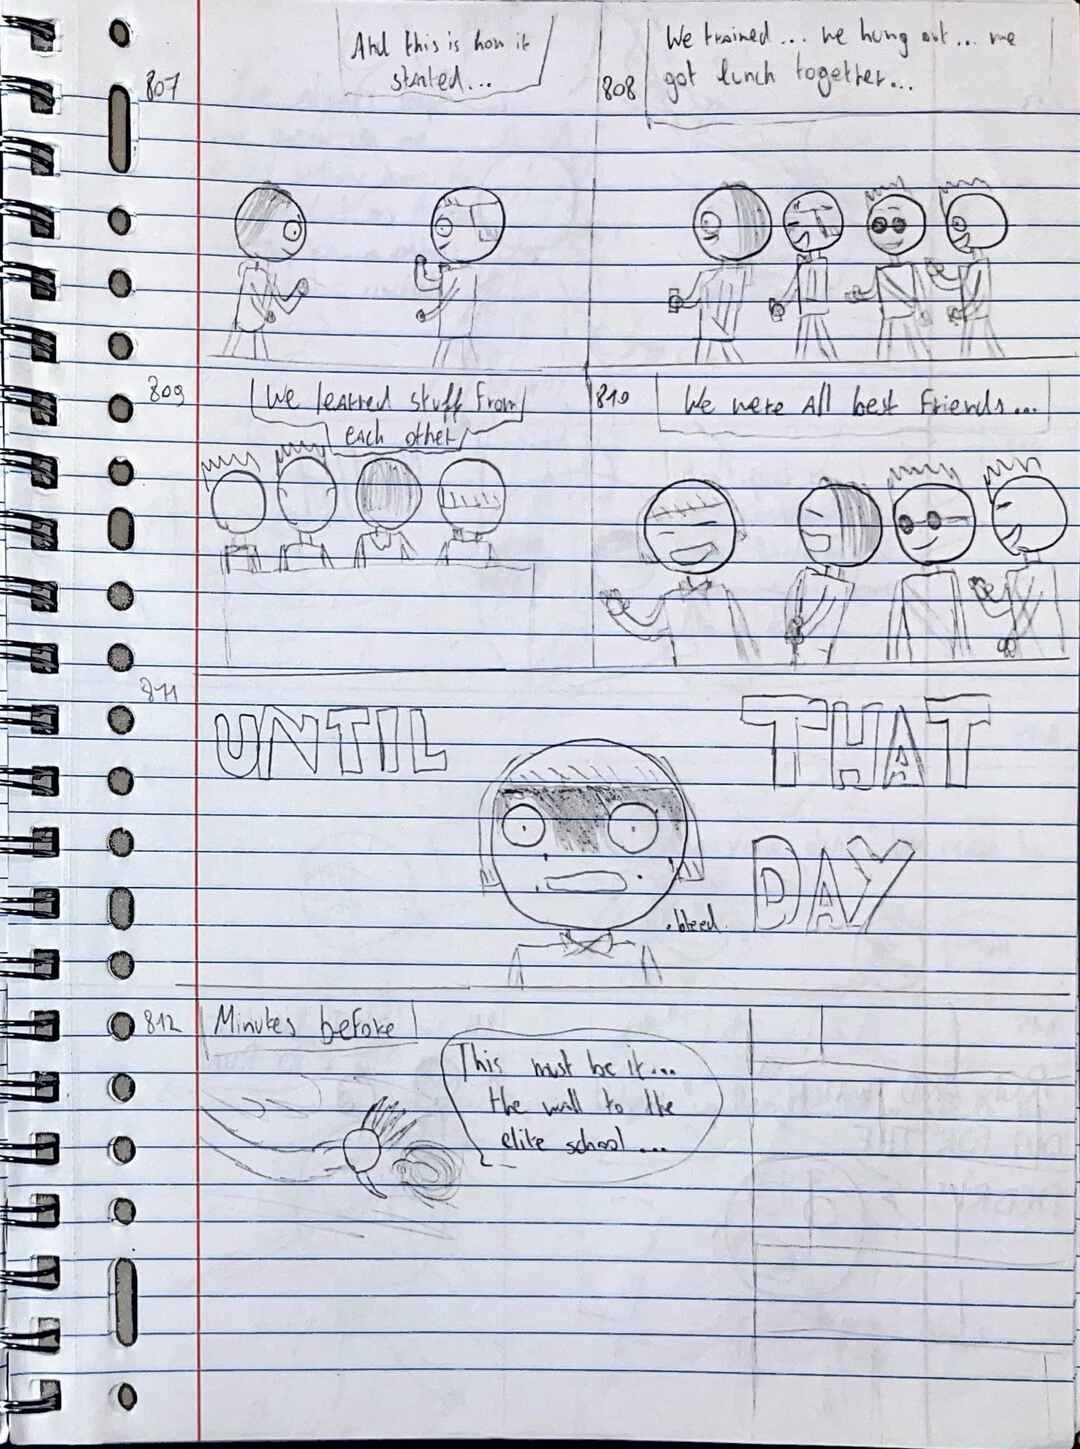 807
And this is how it
started...
808
We trained... we hung out... we
got lunch together...
809
We learned stuff from
each other
810
We were all best friends...
811
UNTIL
THAT
DAY
.bleed.
812
Minutes before
This must be it...
the wall to the
elite school...